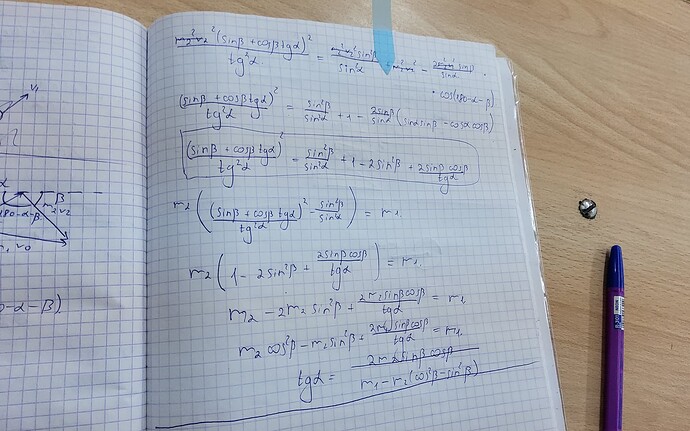 V₁
β
180-α-β
m₂V₂
V₀
0-α-β)
m₂²V₂²(sinβ + cosβ tgα)² / tg²α = m₂²V₂² sin²β / sin²α + m₂²V₂² - 2m₂²V₂² sinβ / sinα ·
· cos(180-α-β)
(sinβ + cosβ tgα)² / tg²α = sin²β / sin²α + 1 - 2sinβ / sinα (sinα sinβ - cosα cosβ)
(sinβ + cosβ tgα)² / tg²α = sin²β / sin²α + 1 - 2sin²β + 2sinβ cosβ / tgα
m₂ ((sinβ + cosβ tgα)² / tg²α - sin²β / sin²α) = m₁
m₂ (1 - 2sin²β + 2sinβ cosβ / tgα) = m₁
m₂ - 2m₂ sin²β + 2m₂ sinβ cosβ / tgα = m₁
m₂ cos²β - m₂ sin²β + 2m₂ sinβ cosβ / tgα = m₁
tgα = 2m₂ sinβ cosβ / m₁ - m₂(cos²β - sin²β)